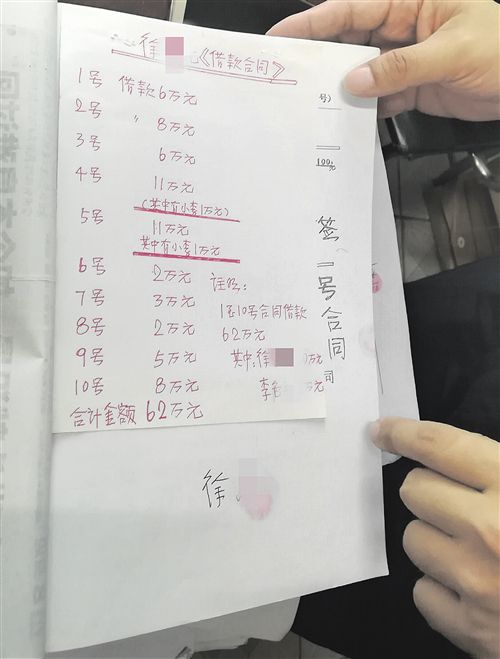 徐 《借款合同》
1号 借款6万元
2号 〃 8万元
3号 6万元
4号 11万元
(其中有小李1万元)
5号 11万元
其中有小李1万元
6号 2万元
7号 3万元
8号 2万元
9号 5万元
10号 8万元
合计金额 62万元
注明:
1至10号合同借款
62万元
其中:徐 万元
李 万元
号)
100元
签一号合同
司
徐